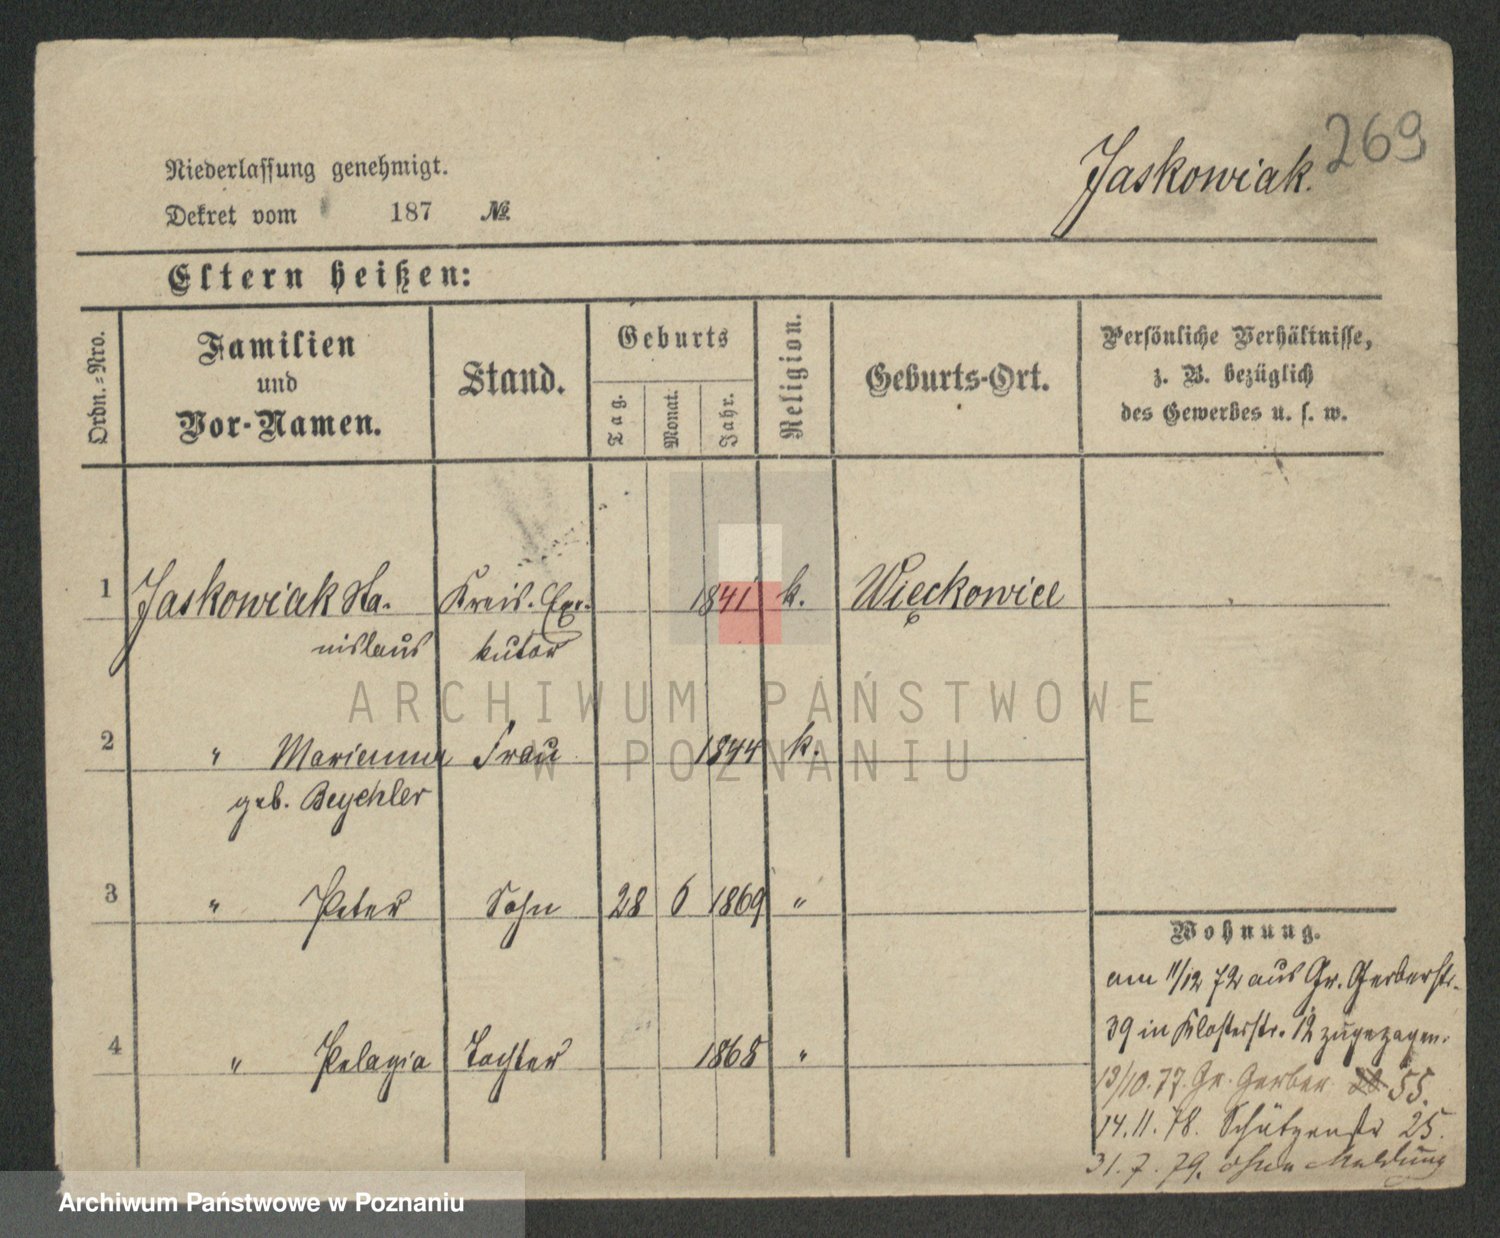 269
Jaskowiak.
Niederlassung genehmigt.
Dekret vom 187 №
Eltern heißen:
Ordn.-Nro.
Familien
und
Vor-Namen.
Stand.
Geburts
Tag.
Monat.
Jahr.
Religion.
Geburts-Ort.
Persönliche Verhältnisse,
z. B. bezüglich
des Gewerbes u. s. w.
1 Jaskowiak Sta- Kreis-Exe- 1841 k. Więckowice
nislaus kutor
2 " Marianna Frau 1844 k.
geb. Beychler
3 " Peter Sohn 28 6 1869 "
4 " Pelagia Tochter 1868 "
Wohnung.
am 11/12 72 aus Gr. Gerberstr.
39 in Klosterstr. 12 zugezogen.
13/10.77. Gr. Gerber 55.
14.11.78. Schützenstr 25.
31.7.79. ohne Meldung
ARCHIWUM PAŃSTWOWE
W POZNANIU
Archiwum Państwowe w Poznaniu